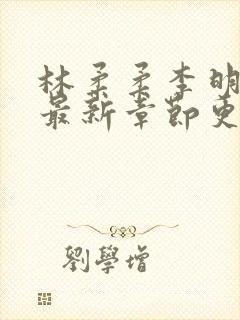 林柔柔李明
最新章节更
劉學增